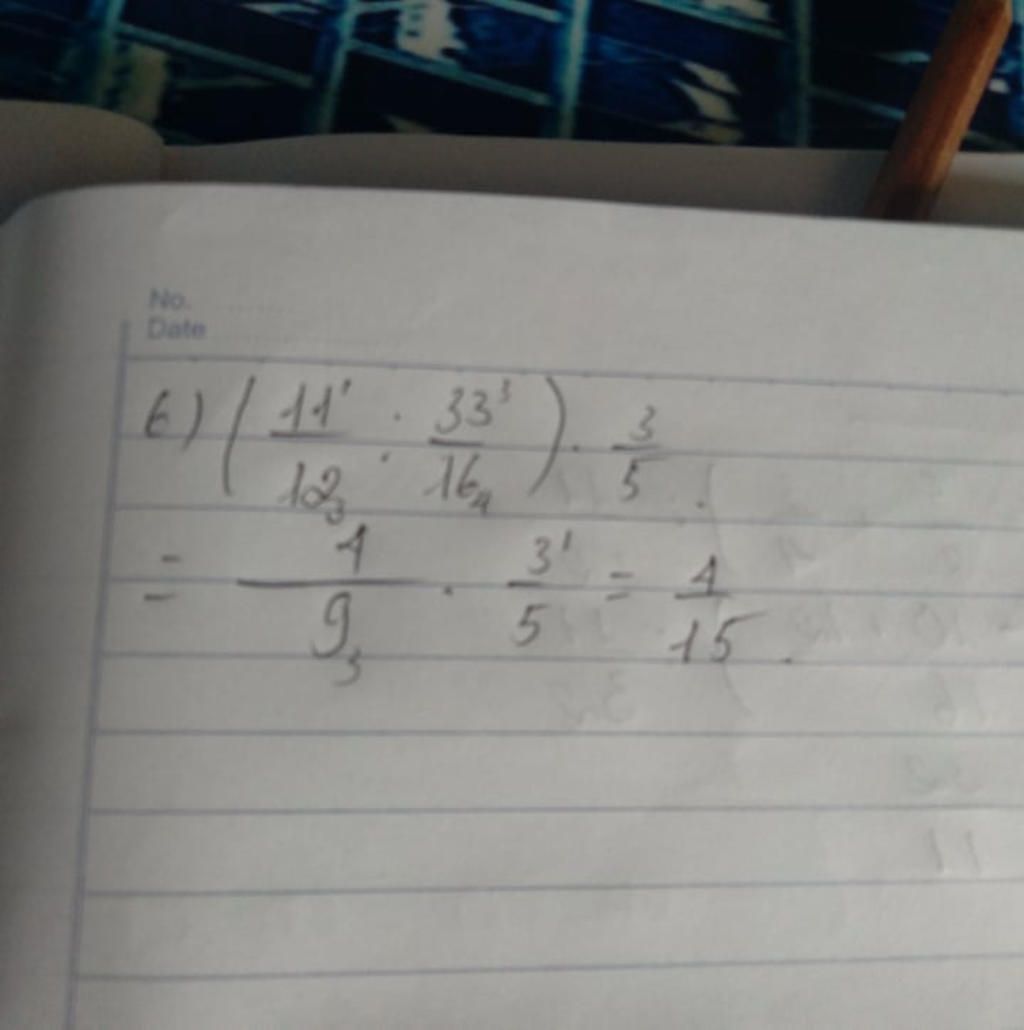 No.
Date
6) ( 11¹/12₃ : 33³/16₄ ) · 3/5 .
= 4/9₃ · 3¹/5 = 4/15 .